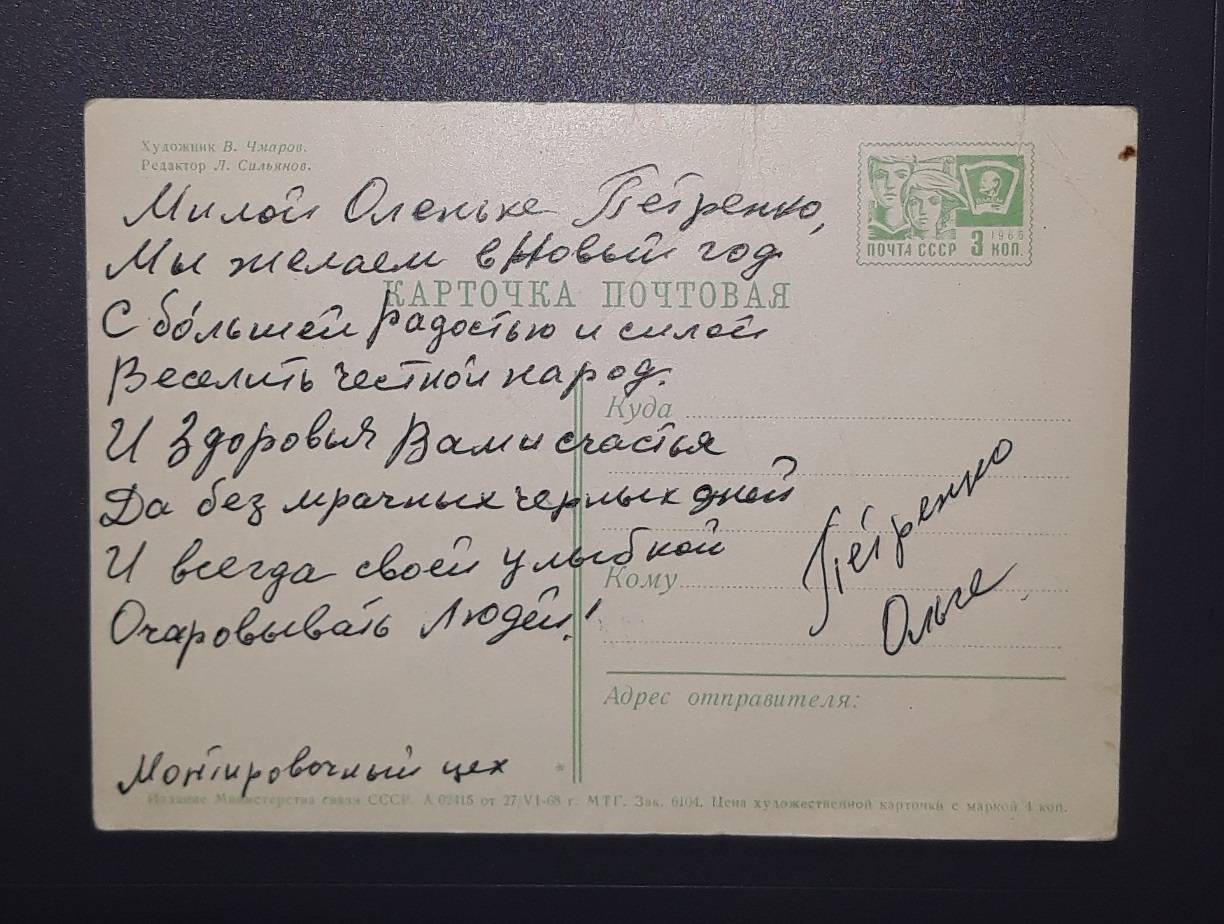 Художник В. Чмаров.
Редактор Л. Сильянов.
Милой Оленьке Петренко,
Мы желаем в Новый год
С бо́льшей радостью и силой
Веселить честной народ.
И Здоровья Вам и счастья
Да без мрачных черных дней
И всегда своей улыбкой
Очаровывать Людей!
Монтировочный цех
1966
ПОЧТА СССР 3 КОП.
КАРТОЧКА ПОЧТОВАЯ
Куда
Петренко
Кому
Ольге
Адрес отправителя:
Издание Министерства связи СССР. А 02415 от 27/VI-68 г. МТГ. Зак. 6104. Цена художественной карточки с маркой 4 коп.